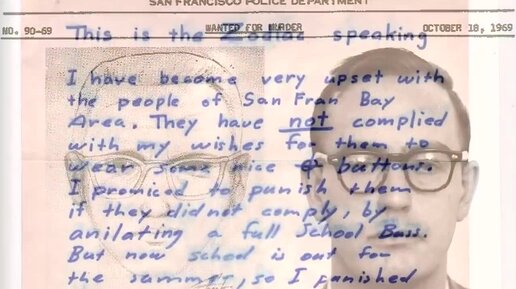 SAN FRANCISCO POLICE DEPARTMENT
NO. 90-69 WANTED FOR MURDER OCTOBER 18, 1969
This is the Zodiac speaking
I have become very upset with
the people of San Fran Bay
Area. They have not complied
with my wishes for them to
wear some nice ⌖ buttons.
I promiced to punish them
if they did not comply, by
anilating a full School Buss.
But now school is out for
the summer, so I punished